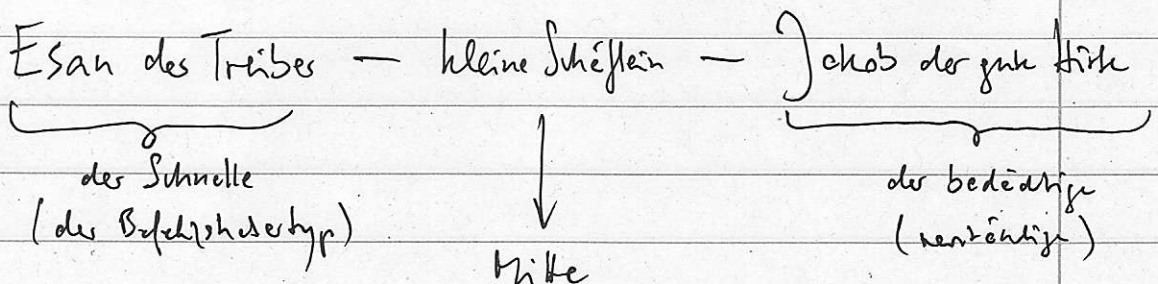 Esau der Treiber — kleine Schäflein — Jakob der gute Hirte
der Schnelle
(der Befehlshabertyp)
Mitte
der bedächtige
(verständige)